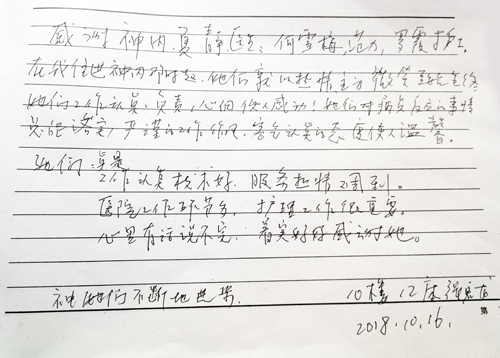 感谢神内贾静医生、何雪梅范力,罗霞护工。
在我住进神内那时起,她们就以热情主动微笑
她们工作认真、负责,心细使人感动!她们对病员反应的事情
总能落实,严谨的工作作风、认真的态度使人温馨。
她们
工作认真技术好、服务热情又周到。
医院工作环节多,护理工作很重要。
心里有话说不完,着实好好感谢她。
祝她们不断地进步。 10楼12床
2018.10.16.
第